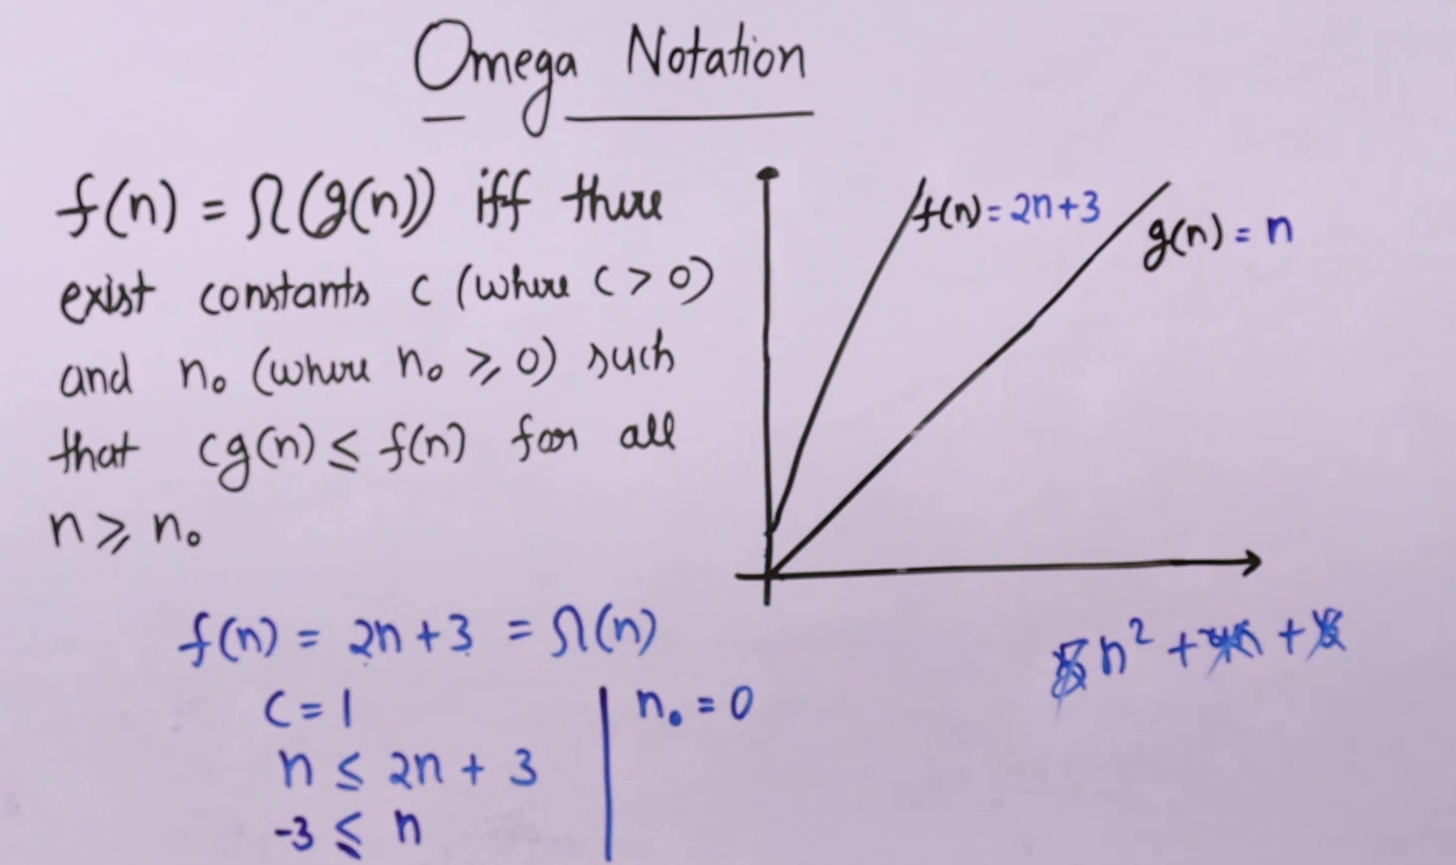 Omega Notation
f(n) = Ω(g(n)) iff there
exist constants c (where c > 0)
and n₀ (where n₀ ≥ 0) such
that cg(n) ≤ f(n) for all
n ≥ n₀
f(n) = 2n+3
g(n) = n
f(n) = 2n+3 = Ω(n)
c = 1
n ≤ 2n + 3
-3 ≤ n
n₀ = 0
n² + +